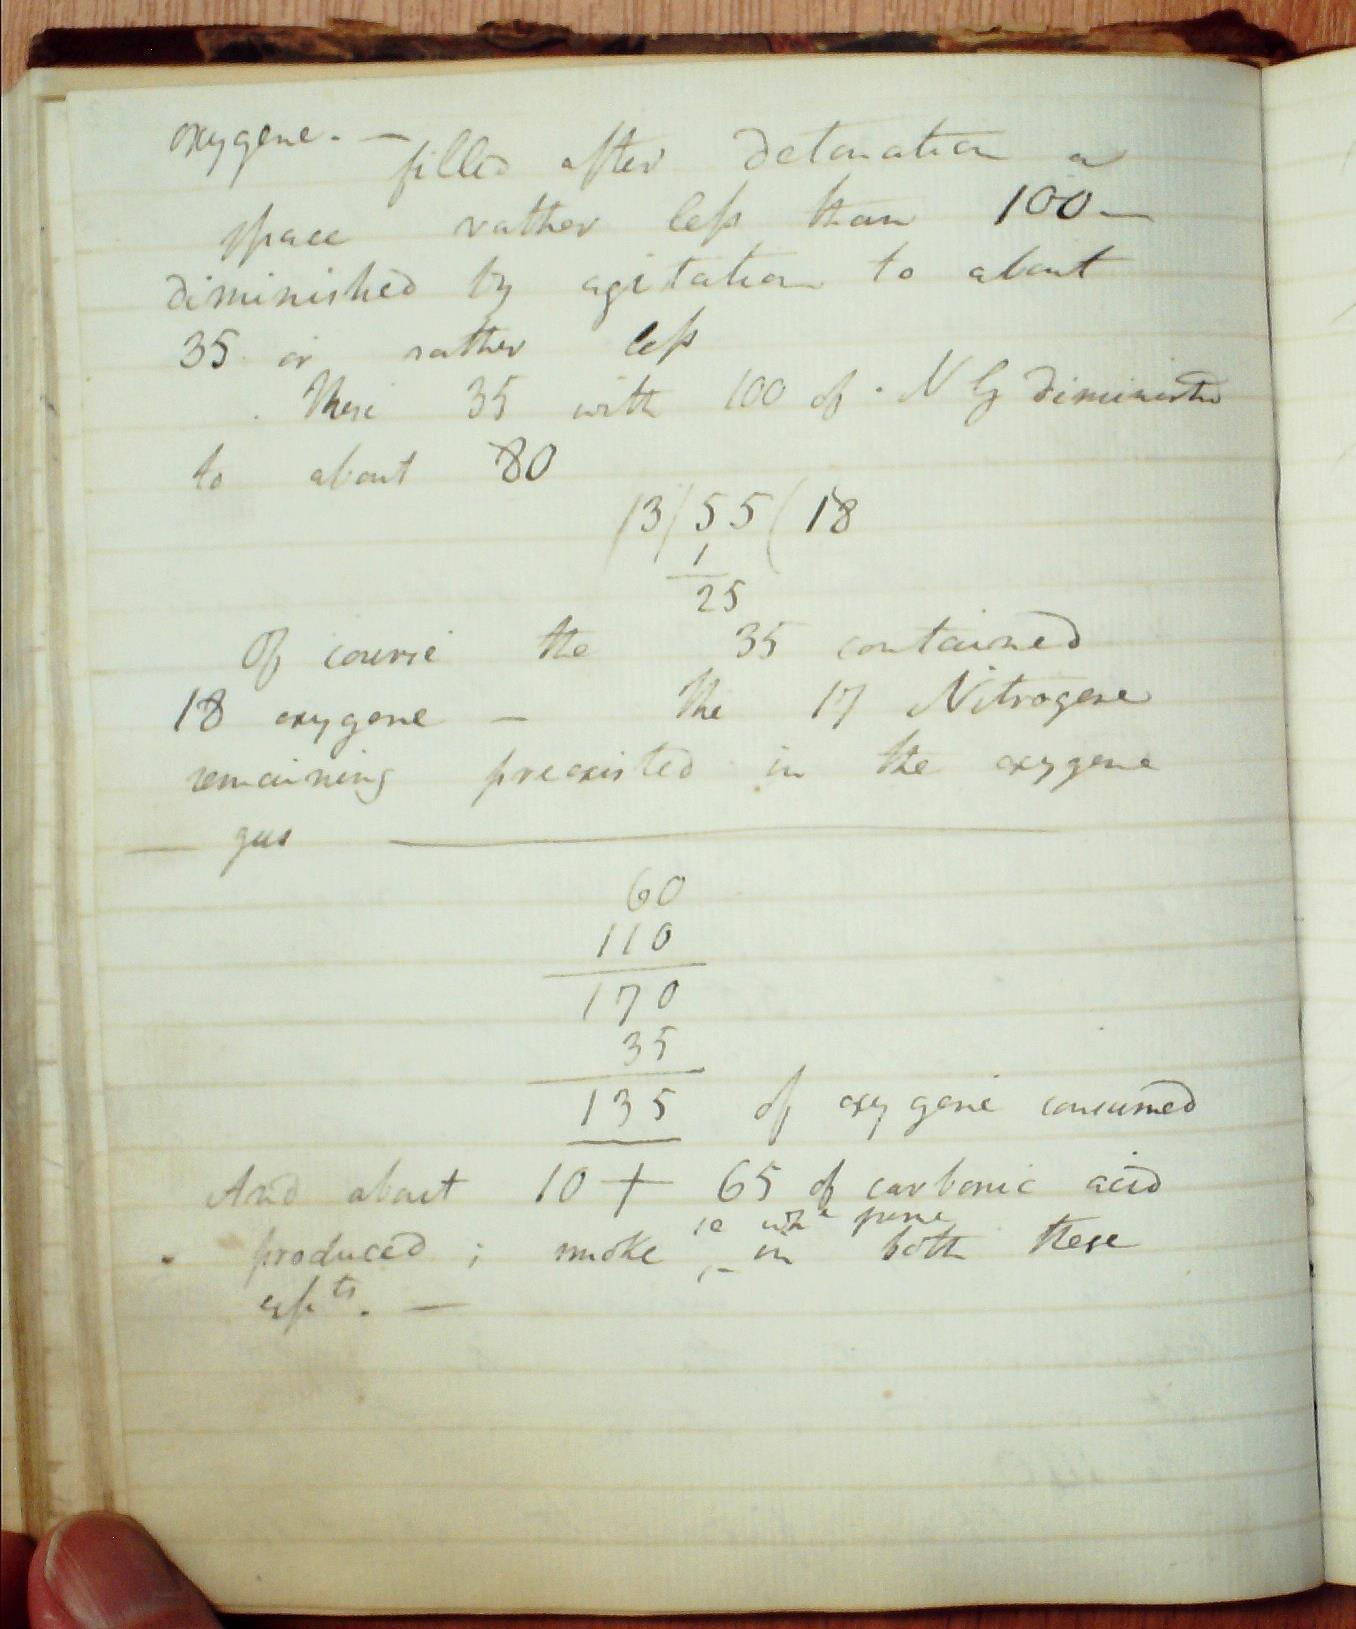 oxygene. —
filled after detonation a
space rather less than 100 —
diminished by agitation to about
35 or rather less
These 35 with 100 of N G diminished
to about 80
13 ) 55 ( 18
1
25
Of course the 35 contained
18 oxygene — The 17 Nitrogene
remaining preexisted in the oxygene
— gas —
60
110
170
35
135 of oxygene consumed
And about 10 + 65 of carbonic acid
produced ; smoke in both these
expts. —